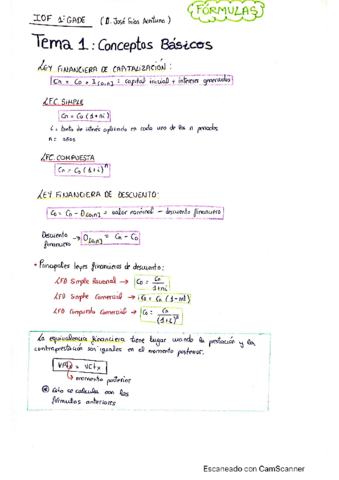 IOF 1º GADE (D. José Frías Aceituno)
FÓRMULAS
Tema 1: Conceptos Básicos
LEY FINANCIERA DE CAPITALIZACIÓN:
Cn = C0 + I[0,n] = capital inicial + intereses generados
LFC. SIMPLE
Cn = C0 (1+ni)
i = tanto de interés aplicado en cada uno de los n periodos
n = años
LFC. COMPUESTA
Cn = C0 (1+i)^n
LEY FINANCIERA DE DESCUENTO:
C0 = Cn - D[0,n] = valor nominal - descuento financiero
Descuento financiero → D[0,n] = Cn - C0
* Principales leyes financieras de descuento:
LFD Simple Racional → C0 = Cn / 1+ni
LFD Simple Comercial → C0 = Cn (1-nd)
LFD Compuesto Comercial → C0 = Cn / (1+i)^n
La equivalencia financiera tiene lugar cuando la prestación y la
contraprestación son iguales en el momento posterior.
momento posterior
Esto se calcula con las
fórmulas anteriores
Escaneado con CamScanner